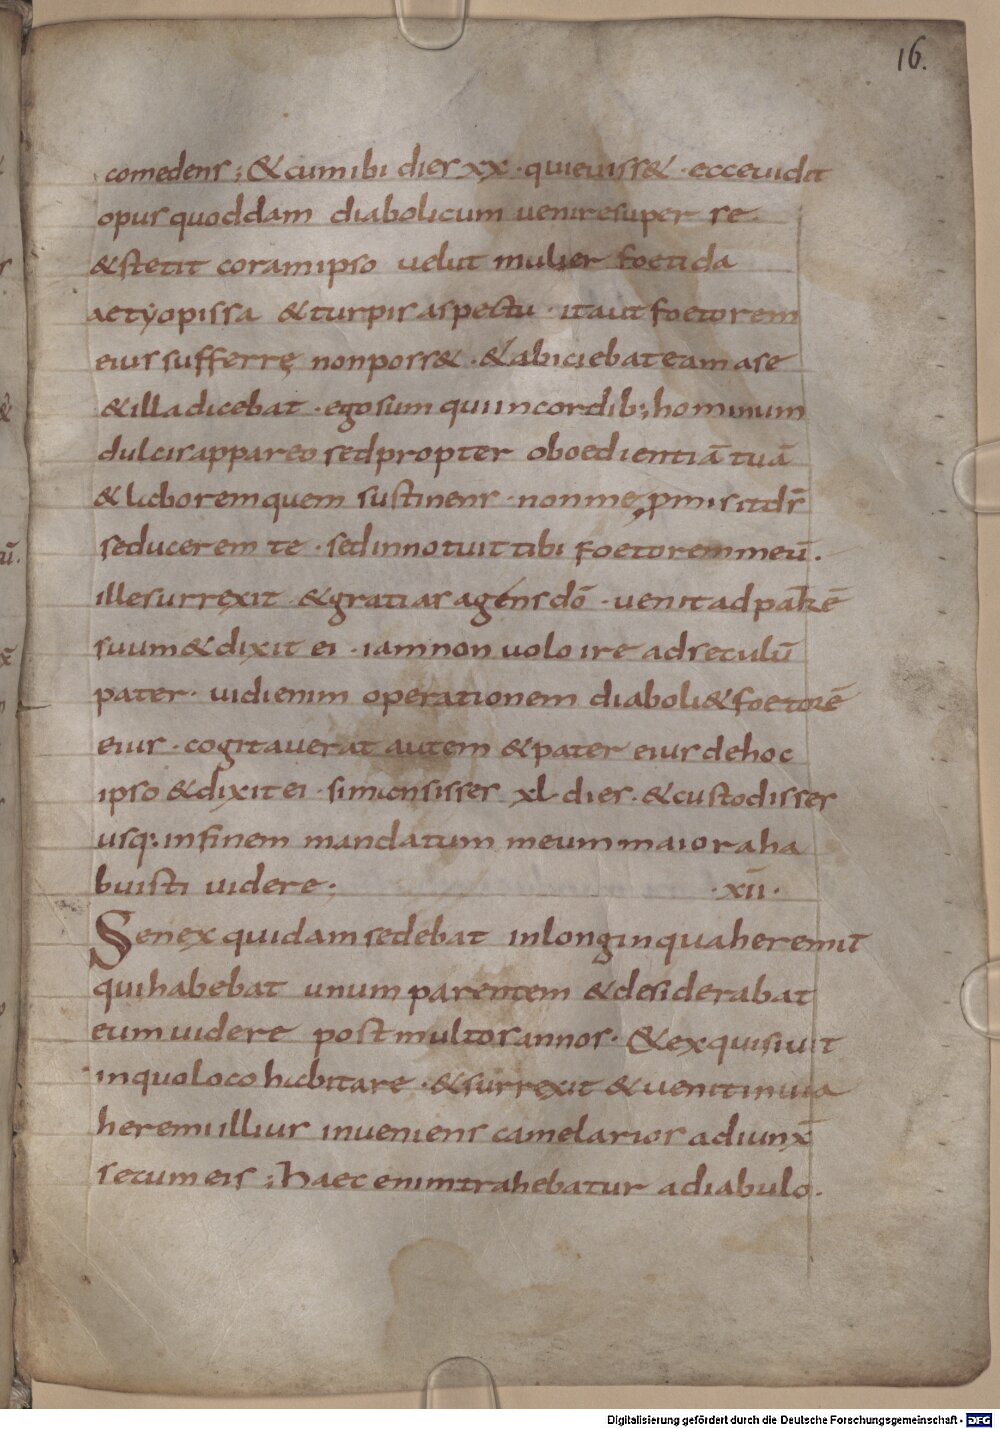 16.
comedens; & cum ibi dies xx · quieuiss& · ecce uidit
opus quoddam diabolicum uenire super se.
& stetit coram ipso uelut mulier foetida
aetyopissa & turpis aspectu · ita ut foetorem
eius sufferrę non poss& · & abiciebat eam a se
& illa dicebat · ego sum qui in cordib; hominum
dulcis appareo sed propter oboedientiā tuā
& laborem quem sustinens · non me p̱misit ds̄
seducerem te · sed innotuit tibi foetorem meū.
ille surrexit & gratias agens dō · uenit ad patrē
suum & dixit ei · iam non uolo ire ad seculū
pater · uidi enim operationem diaboli & foetorē
eius · cogitauerat autem & pater eius de hoc
ipso & dixit ei · si mansisses xl dies · & custodisses
usq: in finem mandatum meum maiora ha
buisti uidere · ·xii·
Senex quidam sedebat in longinqua heremit
qui habebat unum parentem & desiderabat
eum uidere post multos annos · & exquisiuit
in quo loco habitare · & surrexit & uenit in uia
heremi illius inueniens camelarios adiunx̄
secum eis; haec enim trahebatur a diabulo.
Digitalisierung gefördert durch die Deutsche Forschungsgemeinschaft - DFG